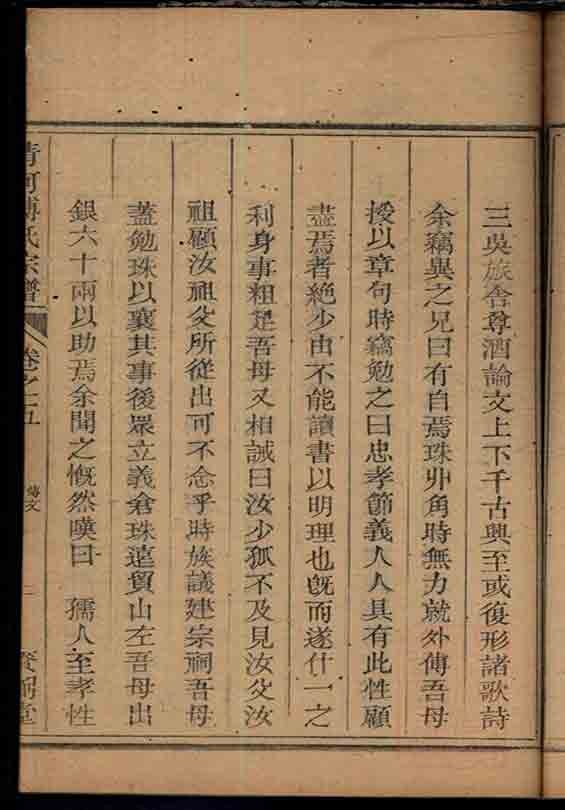 三吳族舍尊酒論文上下千古興至或復形諸歌詩
余竊異之兄曰有自焉珠丱角時無力就外傅吾母
授以章句時竊勉之曰忠孝節義人人具有此性顧
盡焉者絶少由不能讀書以明理也旣而遂什一之
利身事粗足吾母又相誡曰汝少孤不及見汝父汝
祖顧汝祖父所從出可不念乎時族議建宗祠吾母
蓋勉珠以襄其事後眾立義倉珠遠貿山左吾母出
銀六十兩以助焉余聞之慨然嘆曰 孺人至孝性
清河傅氏宗譜 卷之五 傳文